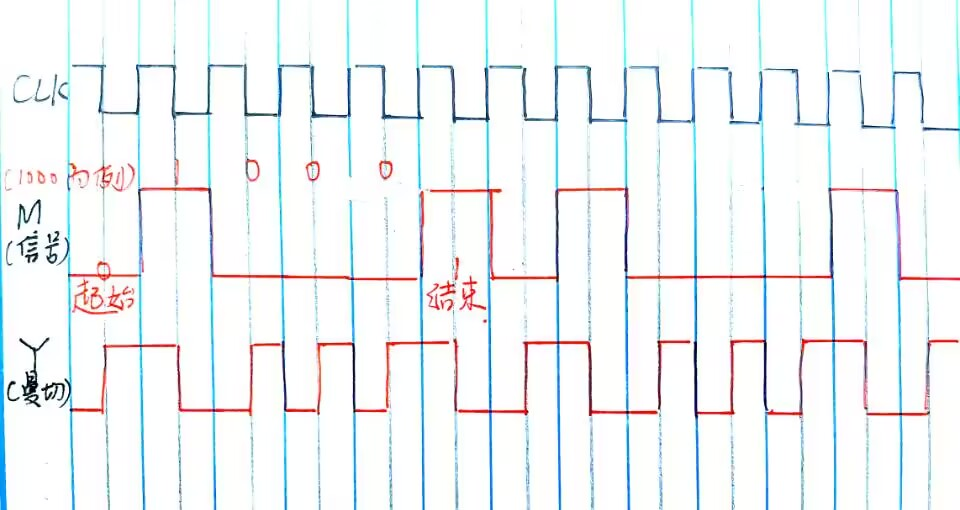 CLK
(1000为例)
1 0 0 0
M
(信号)
0
起始
1
结束.
Y
(曼切)